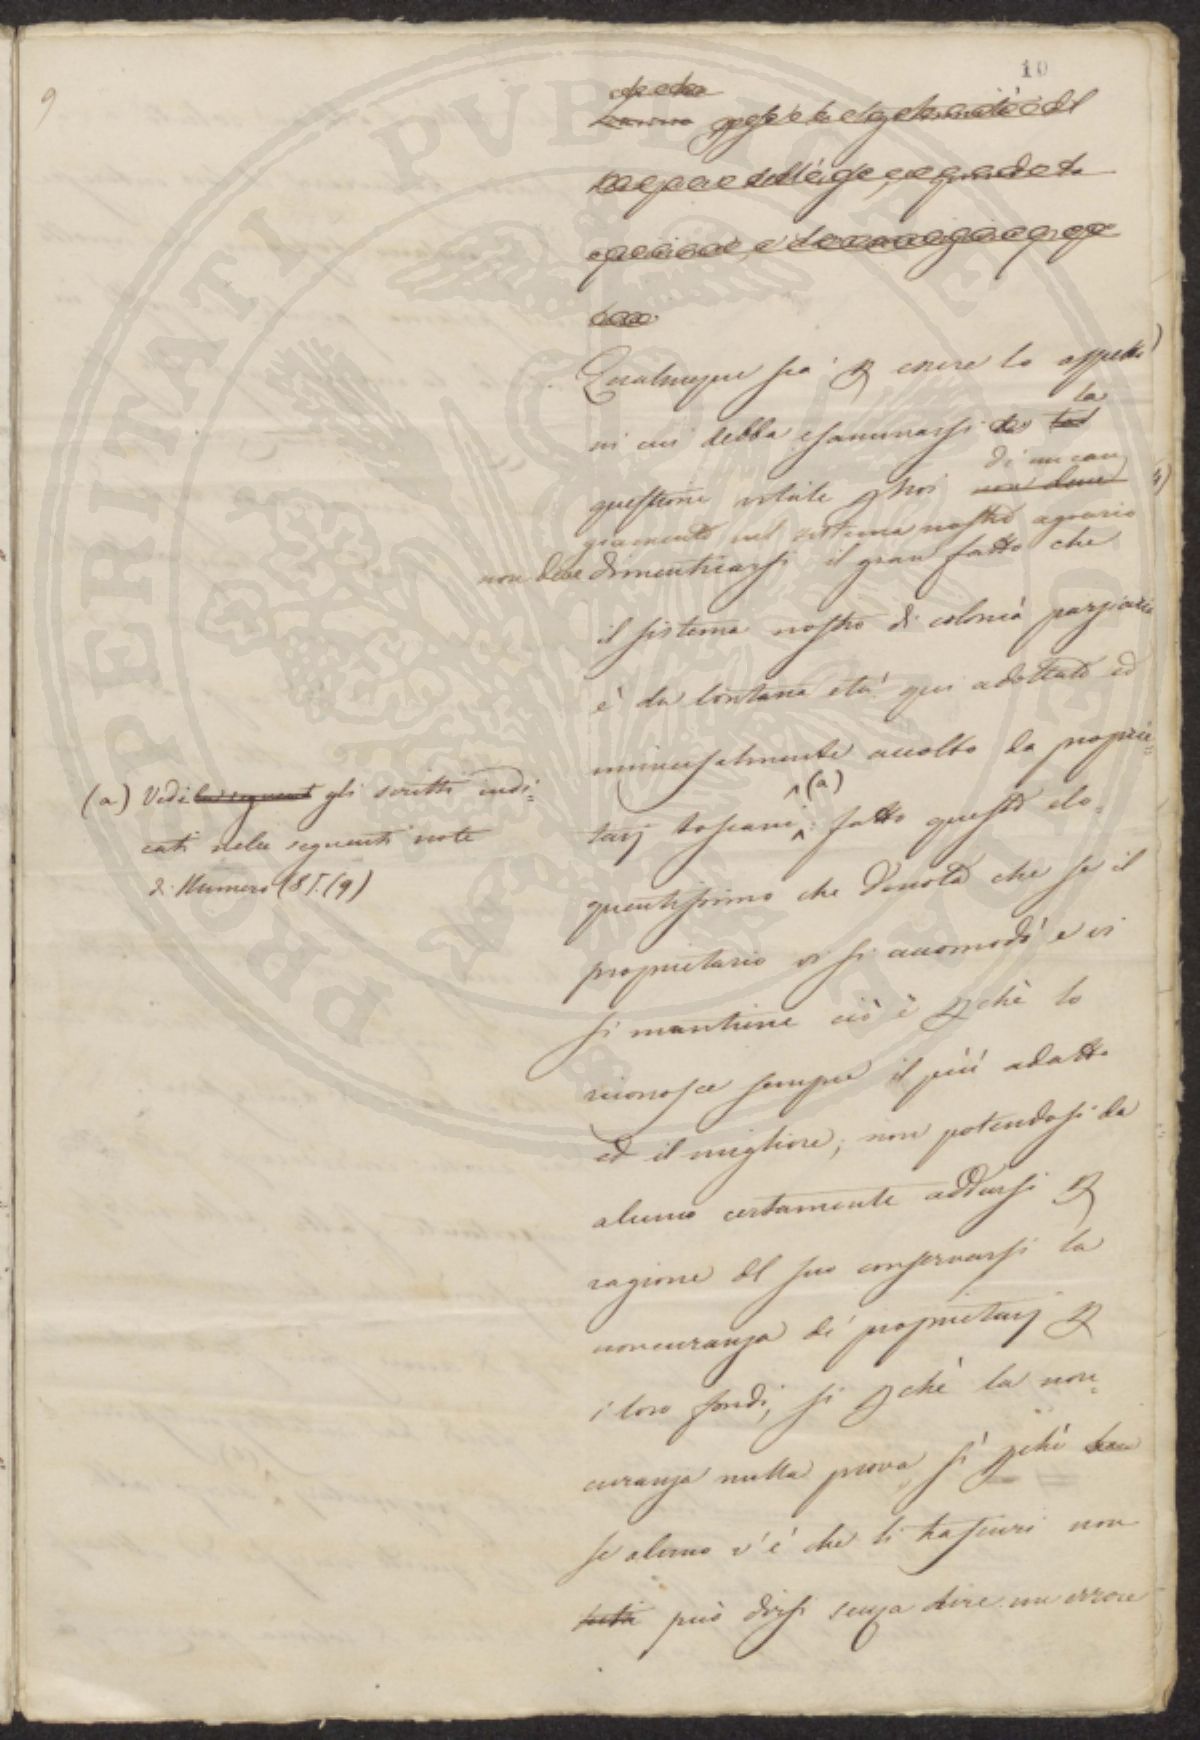 10
9
Qualunque sia p essere lo aspetto
in cui debba esaminarsi la
questione vitale p noi di un can
giamento nel sistema nostro agrario
non deve dimenticarsi il gran fatto che
il sistema nostro di colonia parziaria
è da lontana età qui adottato ed
universalmente accolto da proprie=
tarj toscani: (a) fatto questo elo=
quentissimo che denota che se il
proprietario vi si accomodò e vi
si mantiene ciò è pchè lo
riconosce sempre il più adatto
ed il migliore; non potendosi da
alcuno certamente addursi p
ragione del suo conservarsi la
noncuranza de' proprietarj p
i loro fondi, si pchè la non=
curanza nulla prova, sì pchè
se alcuno v'è che li trascuri non
può dirsi senza dire un errore
(a) Vedi gli scritti indi=
cati nelle seguenti note
di Numero (8). (9)
PROSPERITATI PUBLICAE